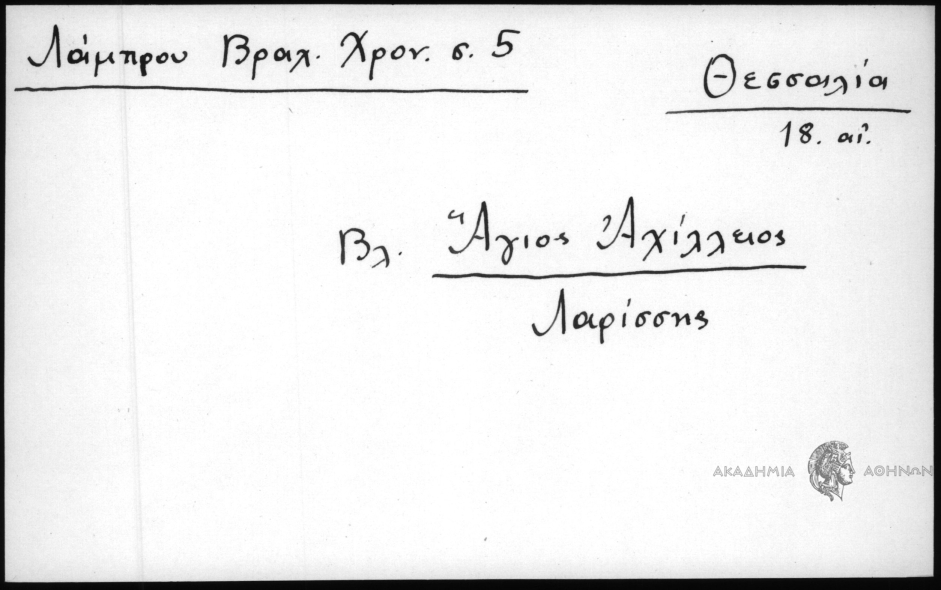 Λάμπρου Βραχ. Χρον. σ. 5
Θεσσαλία
18. αἰ.
Βλ. Ἅγιος Ἀχίλλειος
Λαρίσσης
ΑΚΑΔΗΜΙΑ ΑΘΗΝΩΝ